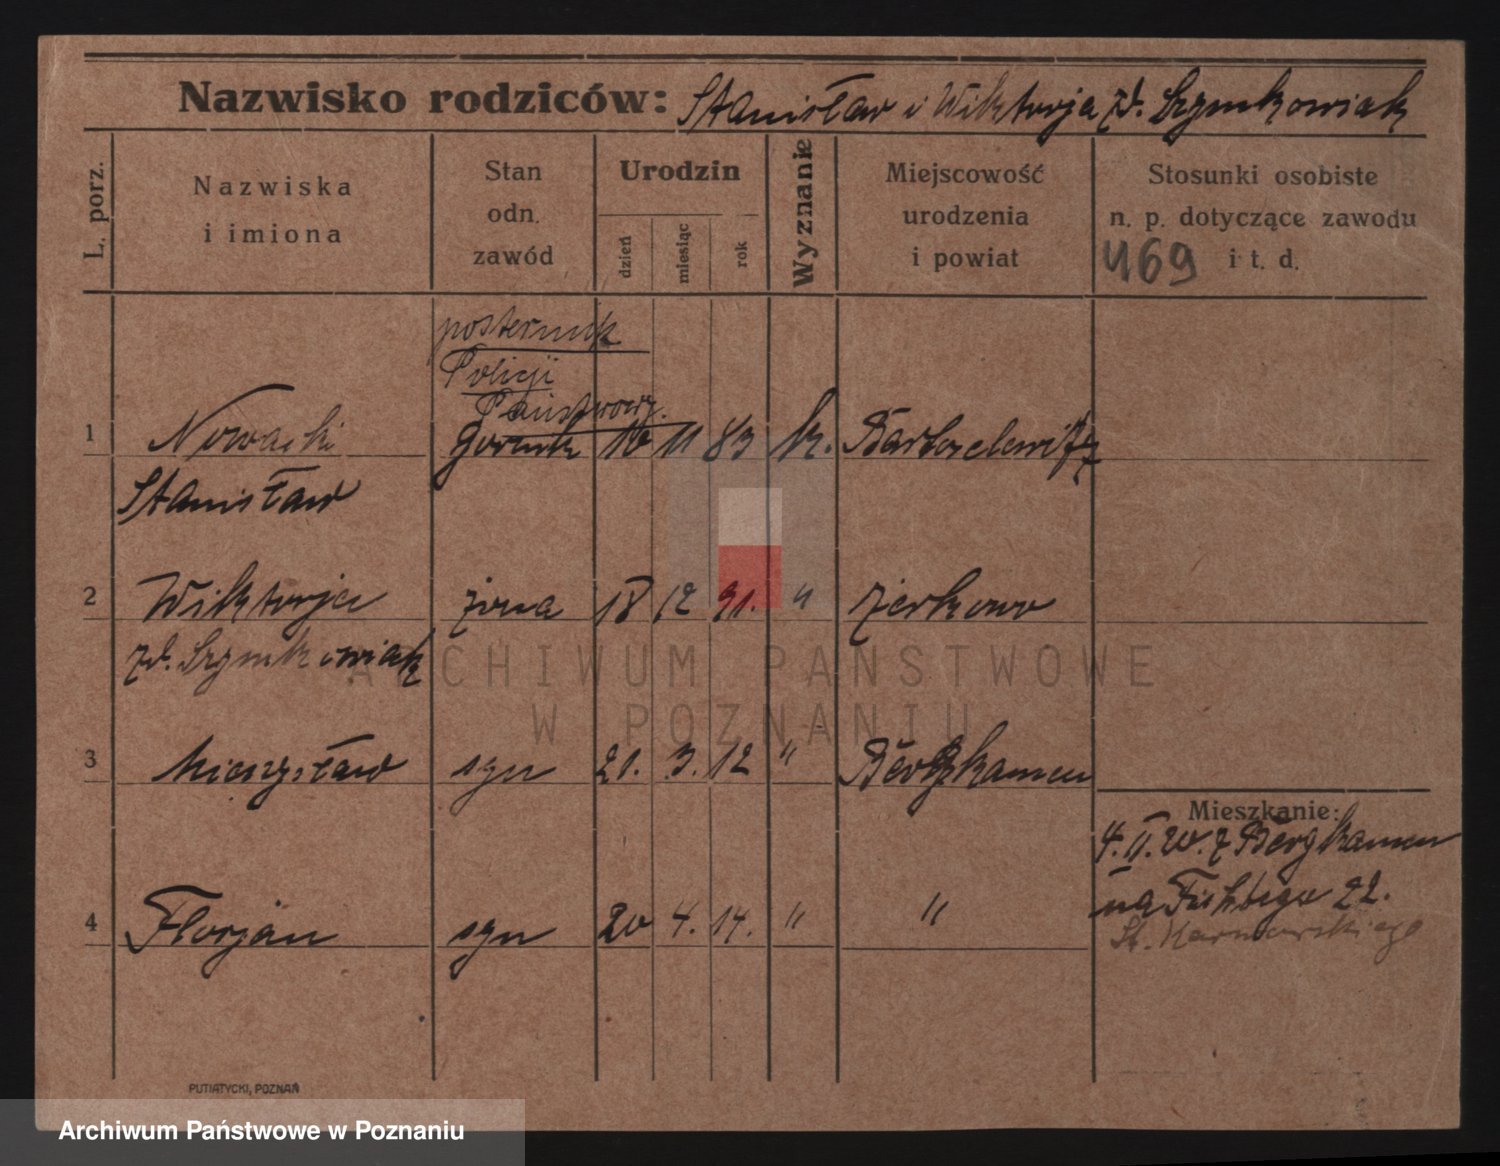 Nazwisko rodziców: Stanisław i Wiktorja zd. Szymkowiak
L. porz.
Nazwiska
i imiona
Stan
odn.
zawód
Urodzin
dzień
miesiąc
rok
Wyznanie
Miejscowość
urodzenia
i powiat
Stosunki osobiste
n. p. dotyczące zawodu
i t. d.
469
posterunk
Policji
Państwowej.
1 Nowacki górnik 16 11 83 k.
Stanisław
2 Wiktorja żona 18 12 91. " Żerkowo
zd. Szymkowiak
3 Mieczysław syn 21. 3. 12 " Bergkamen
Mieszkanie:
4. II. 20. z Bergkamen
na 22.
4 Florjan syn 20 4. 14. " "
PUTIATYCKI, POZNAŃ
ARCHIWUM PAŃSTWOWE
W POZNANIU
Archiwum Państwowe w Poznaniu